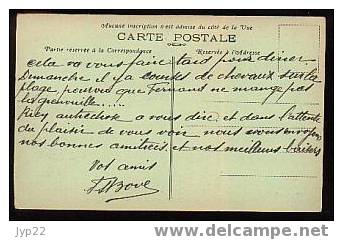 Aucune inscription n'est admise du côté de la Vue
CARTE POSTALE
Partie réservée à la Correspondance
Réservée à l'Adresse
cela va vous faire tard pour dîner
Dimanche il y a courses de chevaux sur la
plage pourvu que Fernand ne mange pas
la grenouille....
Rien autrechose a vous dire et dans l'attente
du plaisir de vous voir nous vous envoyons
nos bonnes amitiées et nos meilleurs baisers
Vos amis
Bove
jyp22
delcampe.net